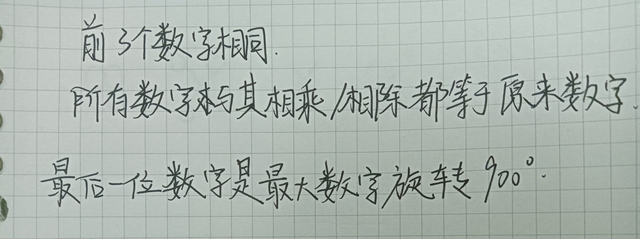 前3个数字相同.
所有数字与其相乘/相除都等于原来数字.
最后一位数字是最大数字旋转900°.